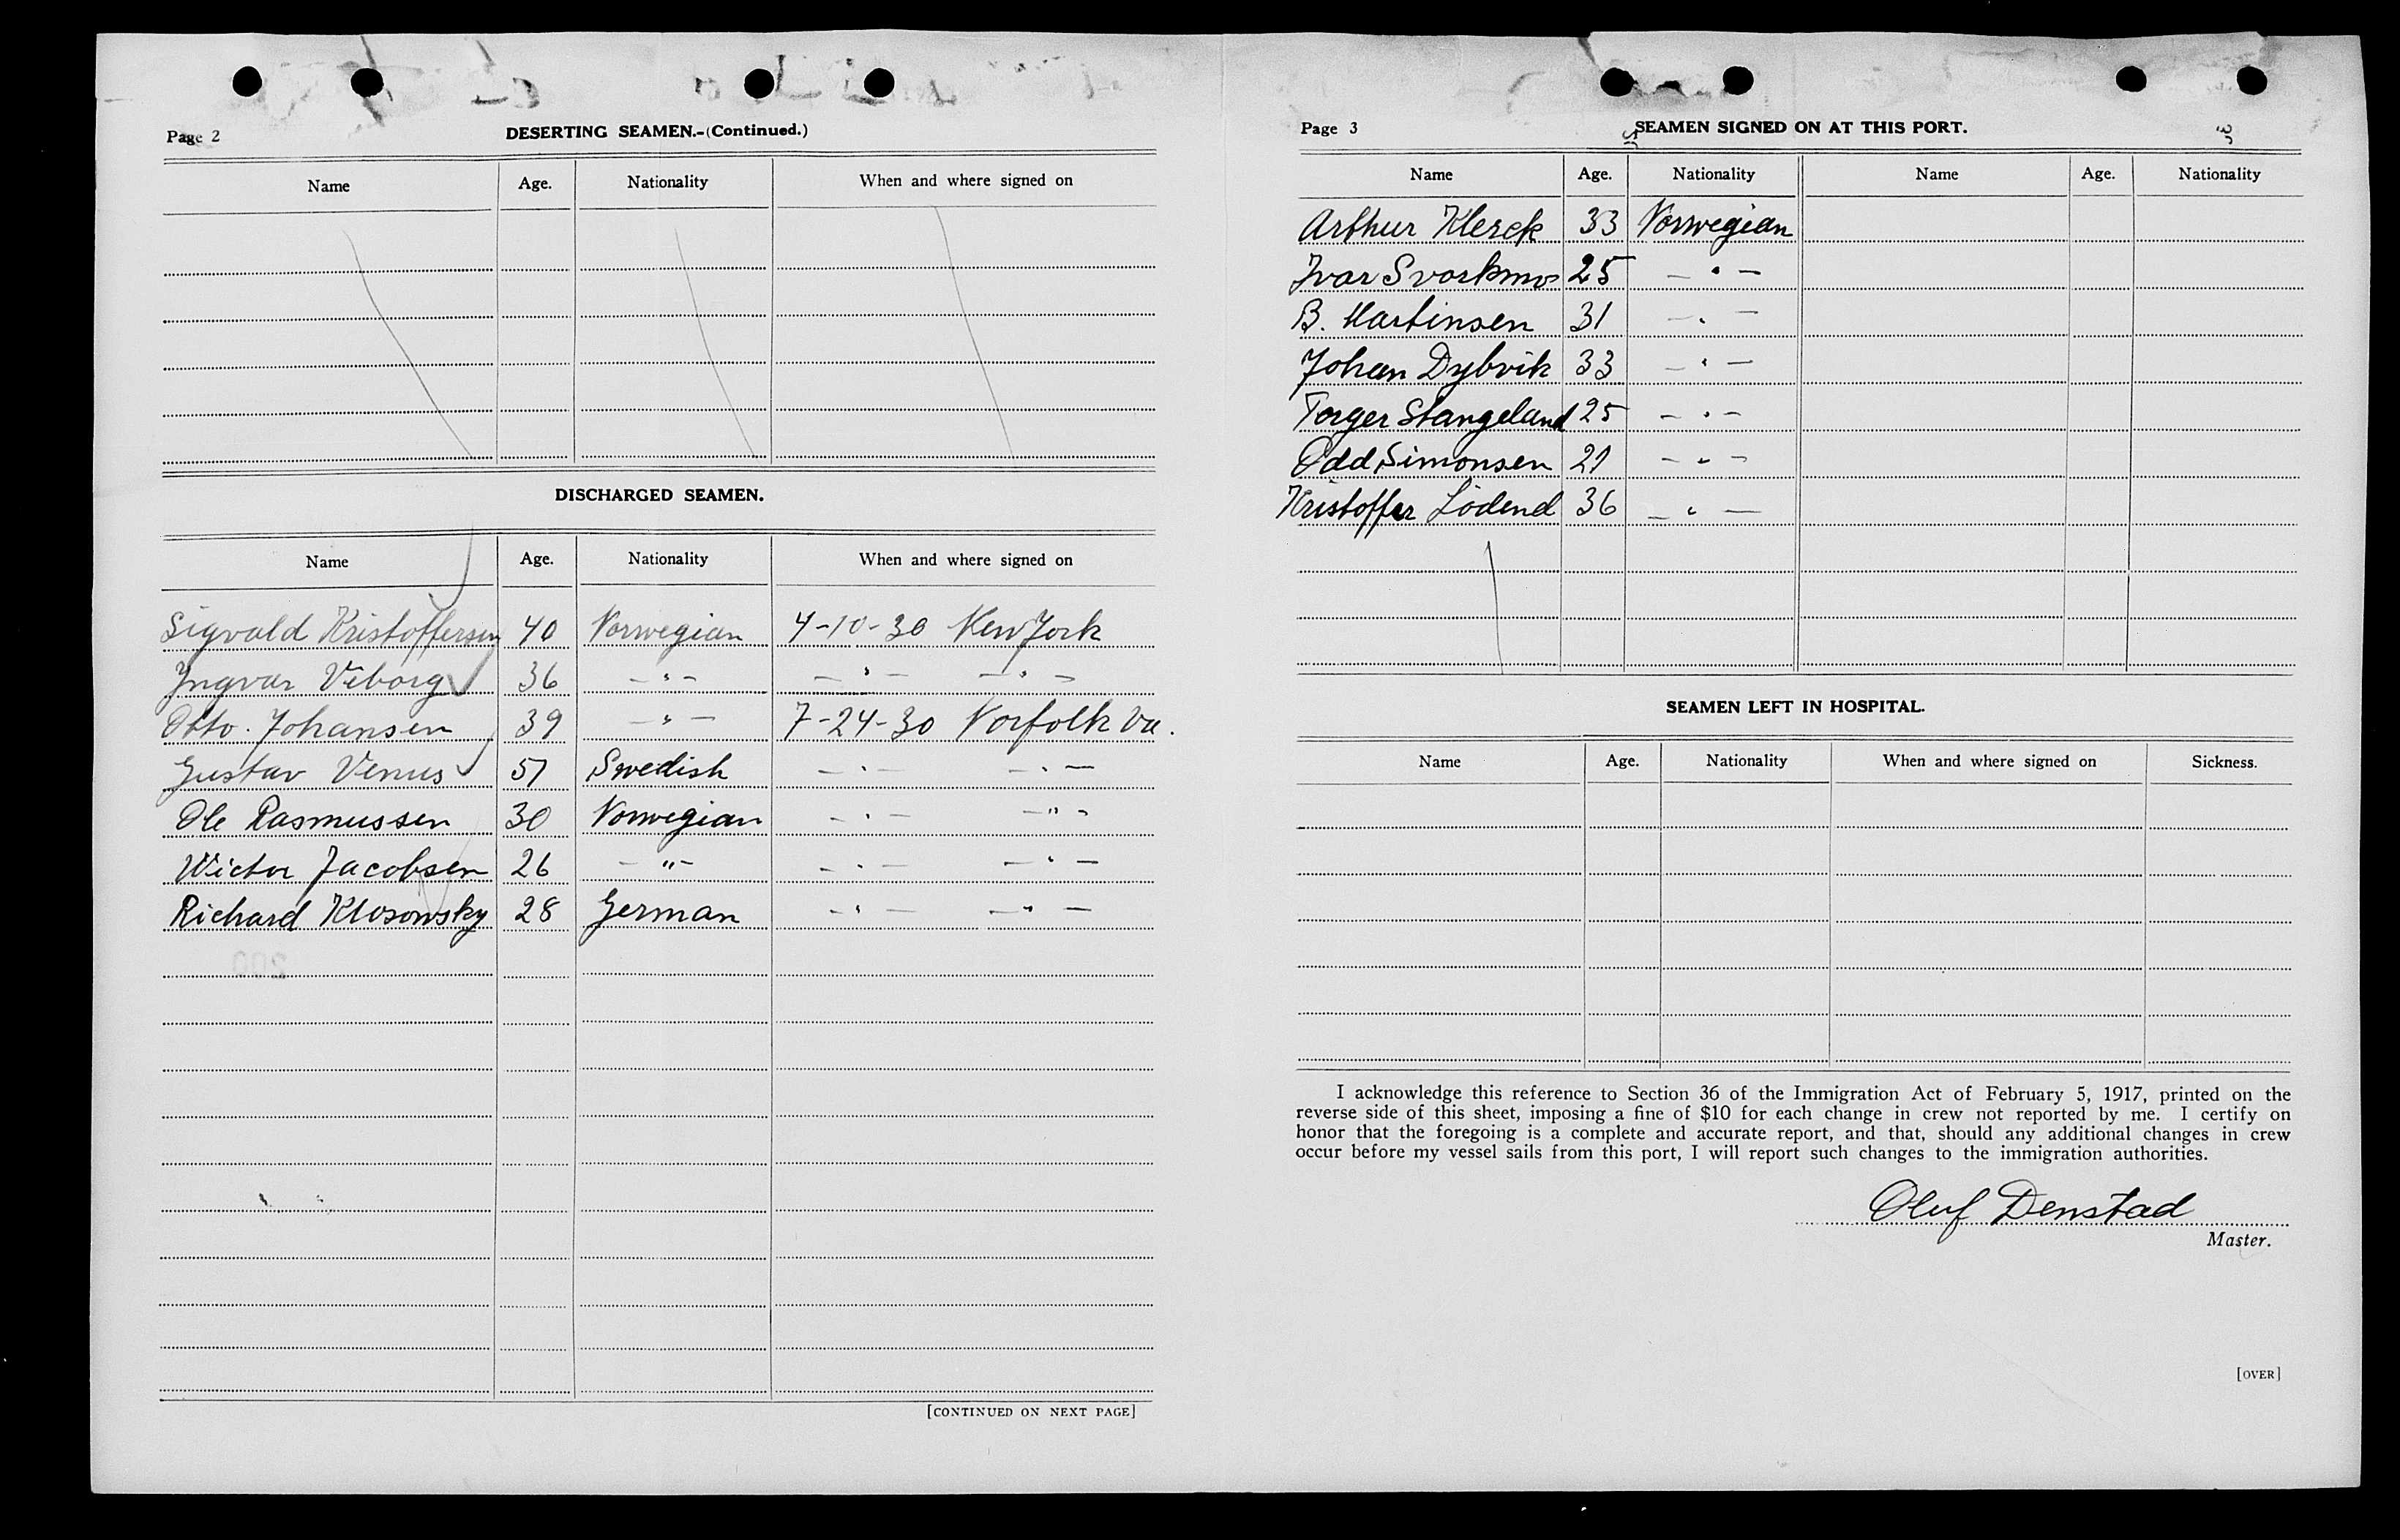 Page 2
DESERTING SEAMEN.-(Continued.)
Name Age. Nationality When and where signed on
DISCHARGED SEAMEN.
Name Age. Nationality When and where signed on
Sigvald Kristoffersen 40 Norwegian 4-10-30 New York
Yngvar Viborg 36 -"- -"- -"-
Otto. Johansen 39 -"- 7-24-30 Norfolk Va.
Gustav Venus 51 Swedish -"- -"-
Ole Rasmussen 30 Norwegian -"- -"-
Victor Jacobsen 26 -"- -"- -"-
Richard Klosowsky 28 German -"- -"-
[CONTINUED ON NEXT PAGE]
Page 3
SEAMEN SIGNED ON AT THIS PORT.
Name Age. Nationality Name Age. Nationality
Arthur Klerck 33 Norwegian
Ivar Svorkmo 25 -"-
B. Martinsen 31 -"-
Johan Dybvik 33 -"-
Torger Stangeland 25 -"-
Odd Simonsen 21 -"-
Kristoffer Lödend 36 -"-
SEAMEN LEFT IN HOSPITAL.
Name Age. Nationality When and where signed on Sickness.
I acknowledge this reference to Section 36 of the Immigration Act of February 5, 1917, printed on the
reverse side of this sheet, imposing a fine of $10 for each change in crew not reported by me. I certify on
honor that the foregoing is a complete and accurate report, and that, should any additional changes in crew
occur before my vessel sails from this port, I will report such changes to the immigration authorities.
Oluf Denstad
Master.
[OVER]